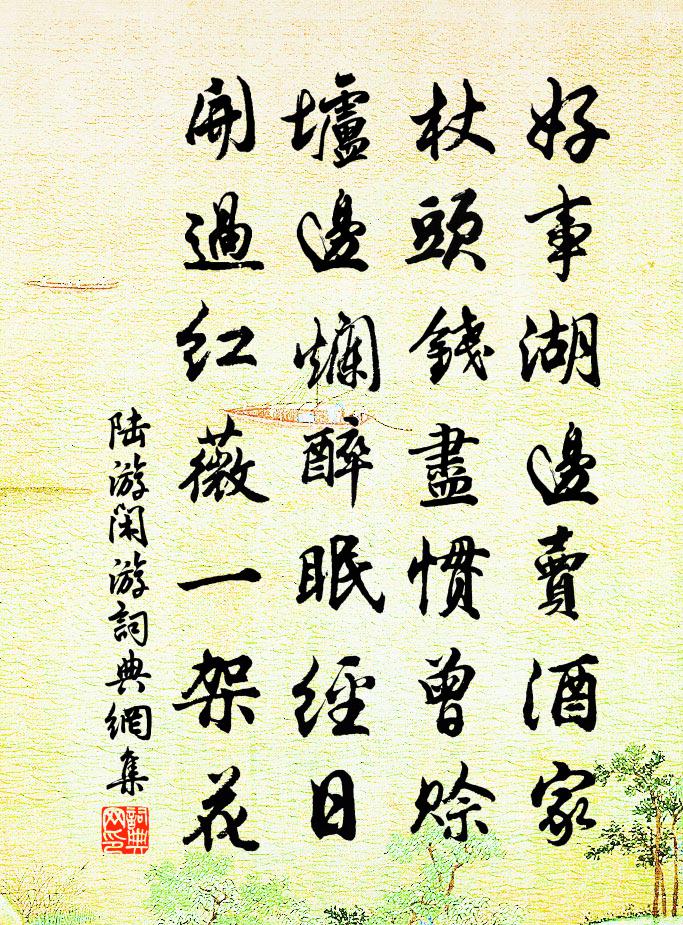 好事湖邊賣酒家
杖頭錢盡慣曾賒
壚邊爛醉眠經日
開過紅薇一架花
陆游闲游詞典網集
詞典网印